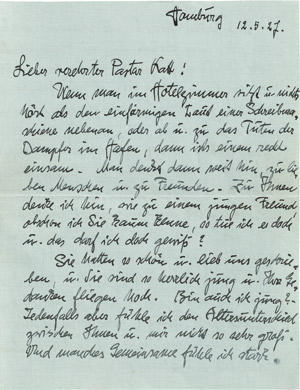 Hamburg
12.5.27.
Lieber verehrter Pastor Katt!
Wenn man im Hotelzimmer sitzt u. nichts
hört als den einförmigen Laut einer Schreibma-
schiene nebenan, oder ab u. zu das Tuten der
Dampfer im Hafen, dann ists einem recht
einsam. Man denkt dann weit hin, zu lie-
ben Menschen u. zu Freunden. Zu Ihnen
denke ich hin, wie zu einem jungen Freund
obschon ich Sie kaum kenne, so tue ich es doch
u. das darf ich doch gewiß?
Sie hatten so schön u. lieb uns geschrie-
ben, u. Sie sind so herzlich jung u. Ihre Ge-
danken fliegen hoch. Bin auch ich jung?
Jedenfalls aber fühle ich den Altersunterschied
zwischen Ihnen u. mir nicht so sehr groß.
Und manches Gemeinsame fühle ich stark